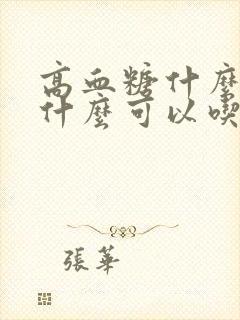 高血糖什麼
什麼可以喫
張華